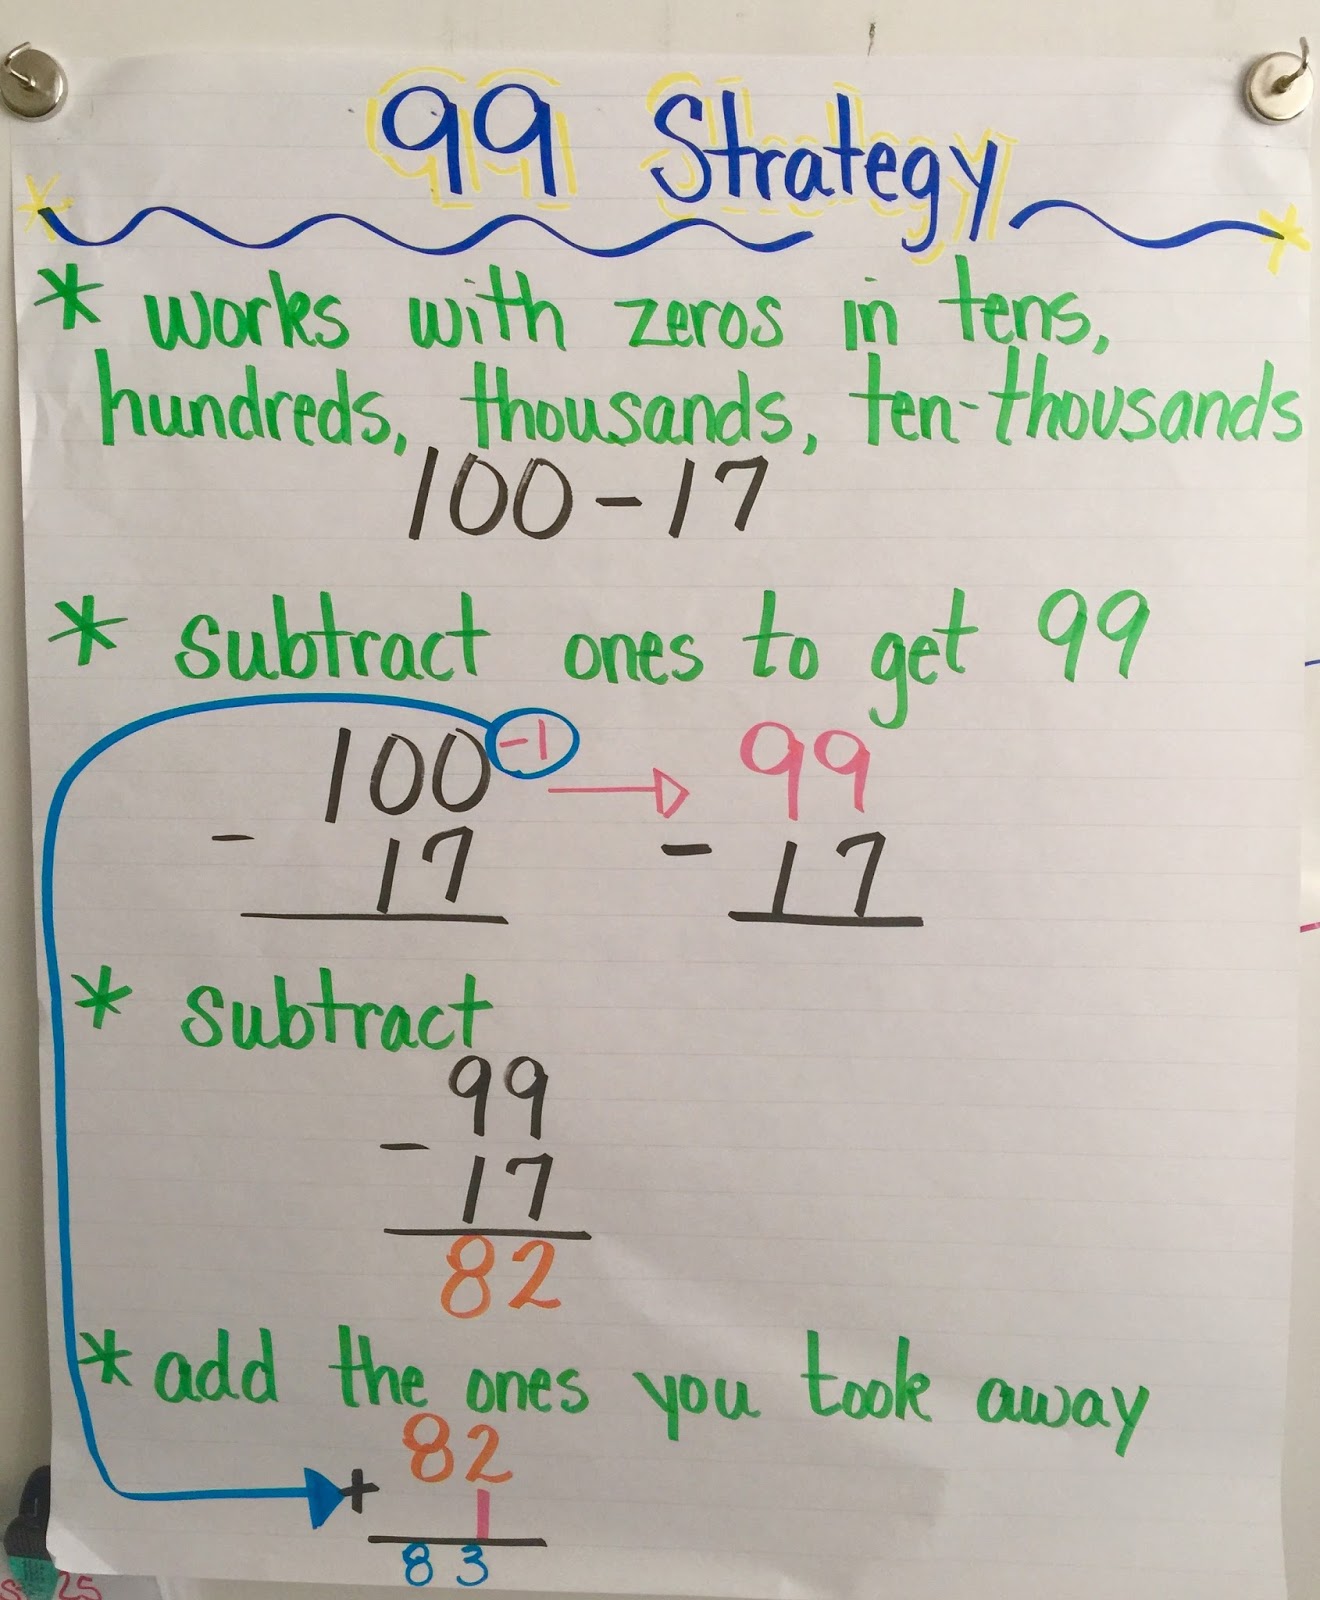 99 Strategy
* works with zeros in tens,
hundreds, thousands, ten-thousands
100-17
* subtract ones to get 99
100 -1 → 99
- 17 - 17
* subtract
99
- 17
82
* add the ones you took away
82
+ 1
83
25